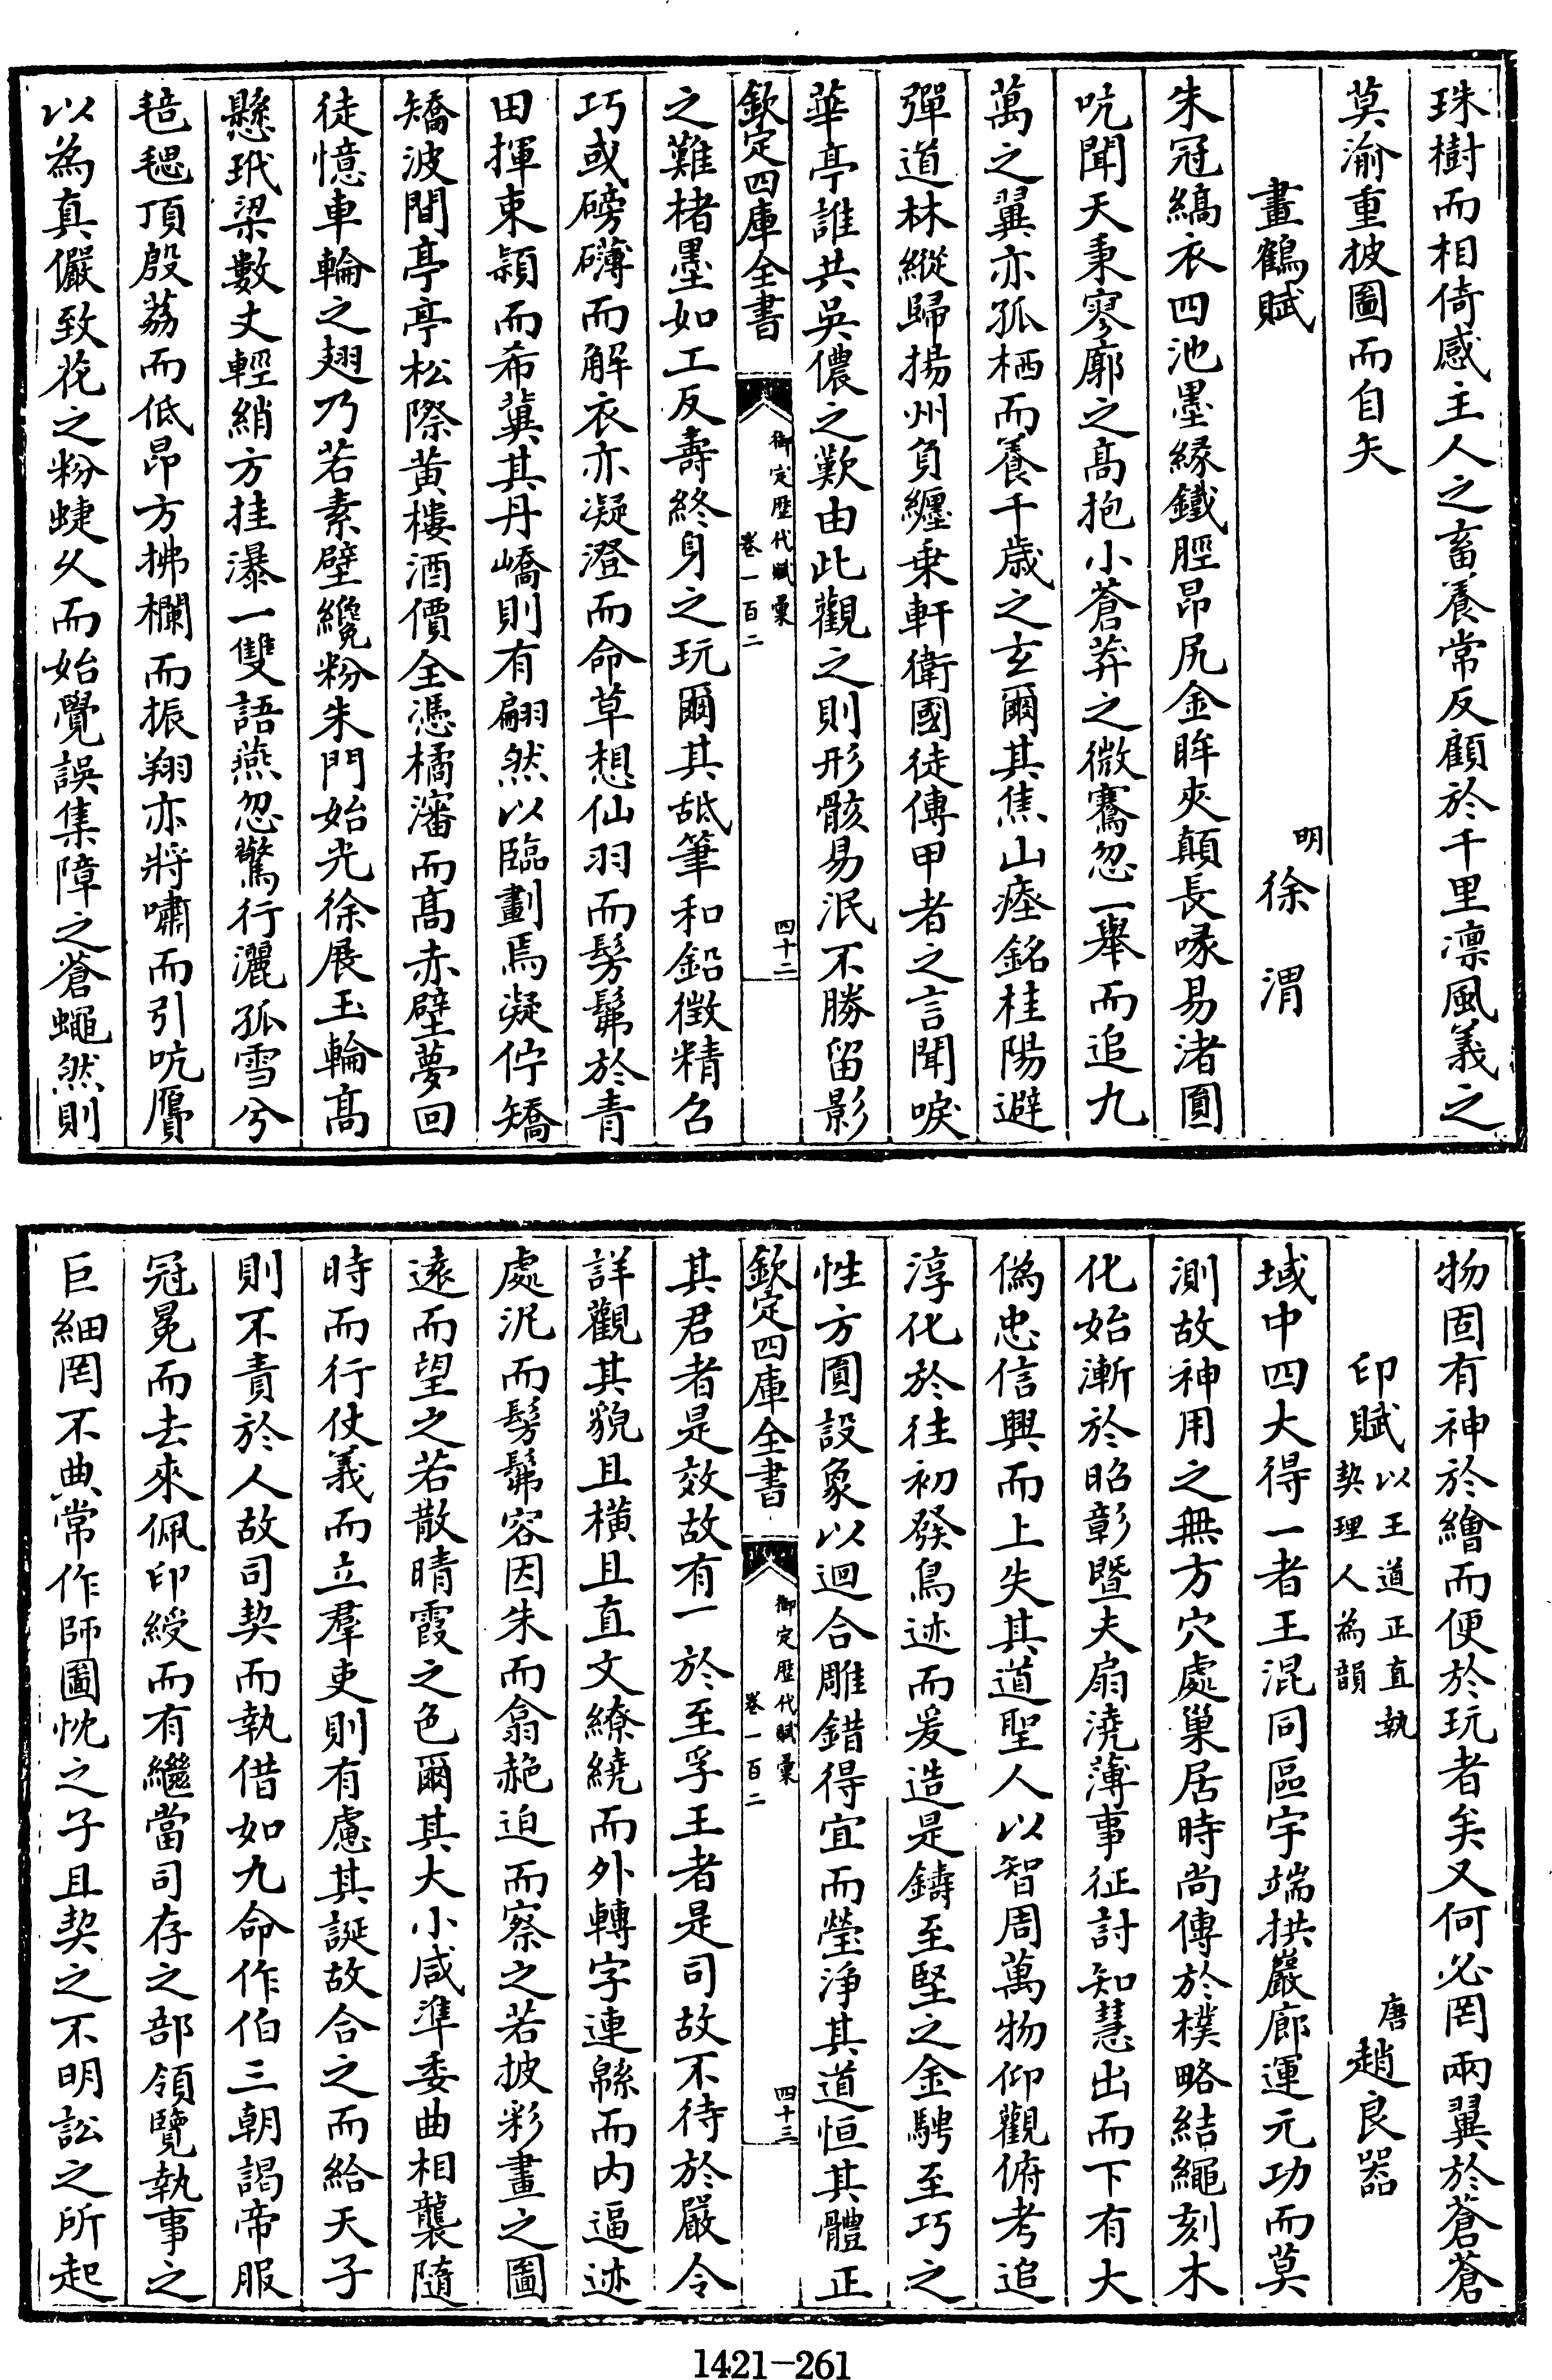 珠樹而相倚感主人之畜養常反顧於千里凛風義之
莫渝重披圖而自矢
畫鶴賦
明 徐渭
朱冠縞衣四池墨緣鐵脛昂尻金眸夾顛長喙易渚圓
吭聞天秉寥廓之高抱小蒼莽之微騫忽一舉而追九
萬之翼亦孤栖而養千歲之玄爾其焦山瘞銘桂陽避
彈道林縱歸揚州負纏乗軒衛國徒傳甲者之言聞唳
華亭誰共吳儂之歎由此觀之則形骸易泯不勝留影
欽定四庫全書
御定歴代賦彙
卷一百二
四十二
之難楮墨如工反壽終身之玩爾其舐筆和鉛徴精召
巧或磅礴而解衣亦凝澄而命草想仙羽而髣髴於青
田揮束頴而希冀其丹嶠則有翩然以臨劃焉凝佇矯
矯波間亭亭松際黄樓酒價全憑橘瀋而高赤壁夢回
徒憶車輪之翅乃若素壁纔粉朱門始光徐展玉輪高
懸玳梁數丈輕綃方挂瀑一雙語燕忽驚行灑孤雪兮
毰毸頂殷荔而低昂方拂欄而振翔亦將嘯而引吭贋
以為真儼致花之粉蜨久而始覺誤集障之蒼蠅然則
物固有神於繪而便於玩者矣又何必罔兩翼於蒼蒼
印賦
以王道正直執
契理人為韻
唐 趙良器
域中四大得一者王混同區宇端拱巖廊運元功而莫
測故神用之無方穴處巢居時尚傳於樸略結繩刻木
化始漸於昭彰暨夫扇澆薄事征討知慧出而下有大
偽忠信興而上失其道聖人以智周萬物仰觀俯考追
淳化於往初發鳥迹而爰造是鑄至堅之金騁至巧之
性方圓設象以迴合雕錯得宜而瑩浄其道恒其體正
欽定四庫全書
御定歴代賦彙
卷一百二
四十三
其君者是效故有一於至孚王者是司故不待於嚴令
詳觀其貌且橫且直文繚繞而外轉字連緜而内逼迹
處泥而髣髴容因朱而翕赩迫而察之若披彩畫之圖
遠而望之若散晴霞之色爾其大小咸準委曲相襲隨
時而行仗義而立羣吏則有慮其誕故合之而給天子
則不責於人故司契而執借如九命作伯三朝謁帝服
冠冕而去來佩印綬而有繼當司存之部領覽執事之
巨細罔不典常作師圖忱之子且契之不明訟之所起
1421-261